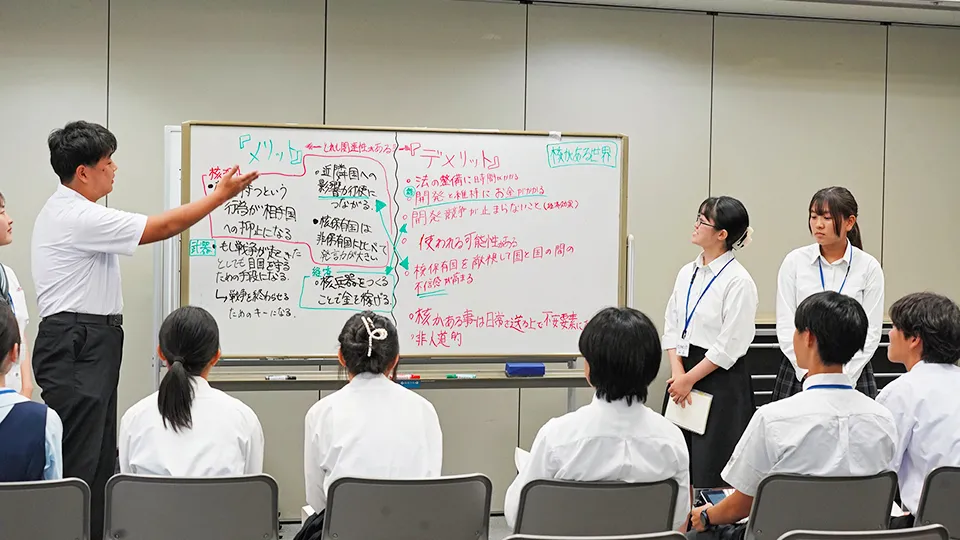 『メリット』
←どれも関連性がある!→
『デメリット』
核がある世界
つという
行為が相手国
への抑止になる
武器
もし戦争が起きた
としても自国を守る
ための手段になる。
↳戦争を終わらせる
ためのキーになる。
●近隣国への
影響力行使に
つながる。
●核保有国は
非保有国と比べて
発言力が大きい
経済
●核兵器をつくる
ことで金を稼げる
○法の整備に時間がかかる
○開発と維持にお金がかかる
○開発競争が止まらないこと
○使われる可能性がある
○核保有国を敵視して国と国の間の
不信感が高まる
○核がある事は日常を送る上で不安要素に
○非人道的